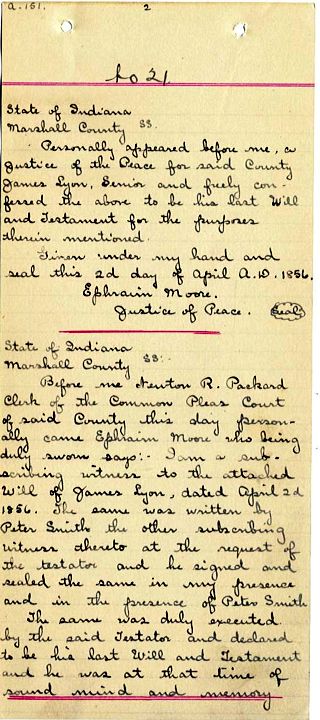 a.151.
2
No 21.
State of Indiana
Marshall County SS.
Personally appeared before me, a
Justice of the Peace for said County
James Lyon, Senior and freely con-
ferred the above to be his last Will
and Testament for the purposes
therein mentioned.
Given under my hand and
seal this 2d day of April A.D. 1856.
Ephraim Moore.
Justice of Peace. Seal
State of Indiana
Marshall County SS:-
Before me Newton R. Packard
Clerk of the Common Pleas Court
of said County this day person-
ally came Ephraim Moore who being
duly sworn says:- I am a sub-
scribing witness to the attached
Will of James Lyon, dated April 2d
1856. The same was written by
Peter Smith the other subscribing
witness thereto at the request of
the testator and he signed and
sealed the same in my presence
and in the presence of Peter Smith
The same was duly executed
by the said Testator and declared
to be his last Will and Testament
and he was at that time of
sound mind and memory